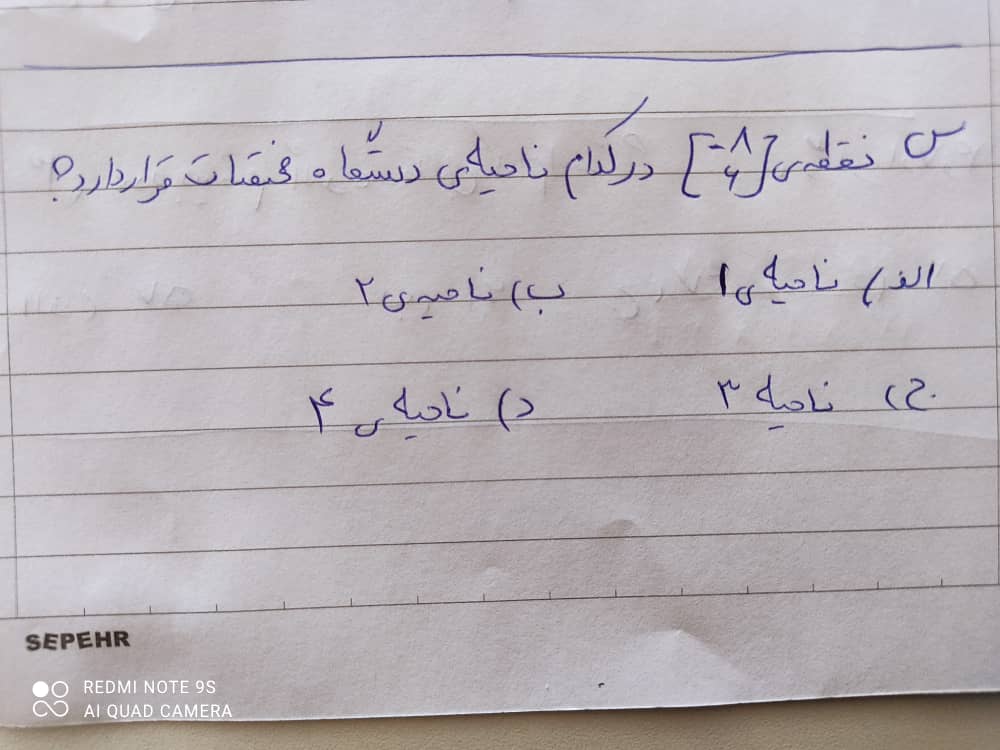 س نقطه‌ی [-۸ ۶] در کدام ناحیه‌ی دستگاه مختصات قرار دارد؟
الف) ناحیه‌ی ۱ ب) ناحیه‌ی ۲
ج) ناحیه ۳ د) ناحیه‌ی ۴
SEPEHR
REDMI NOTE 9S
AI QUAD CAMERA